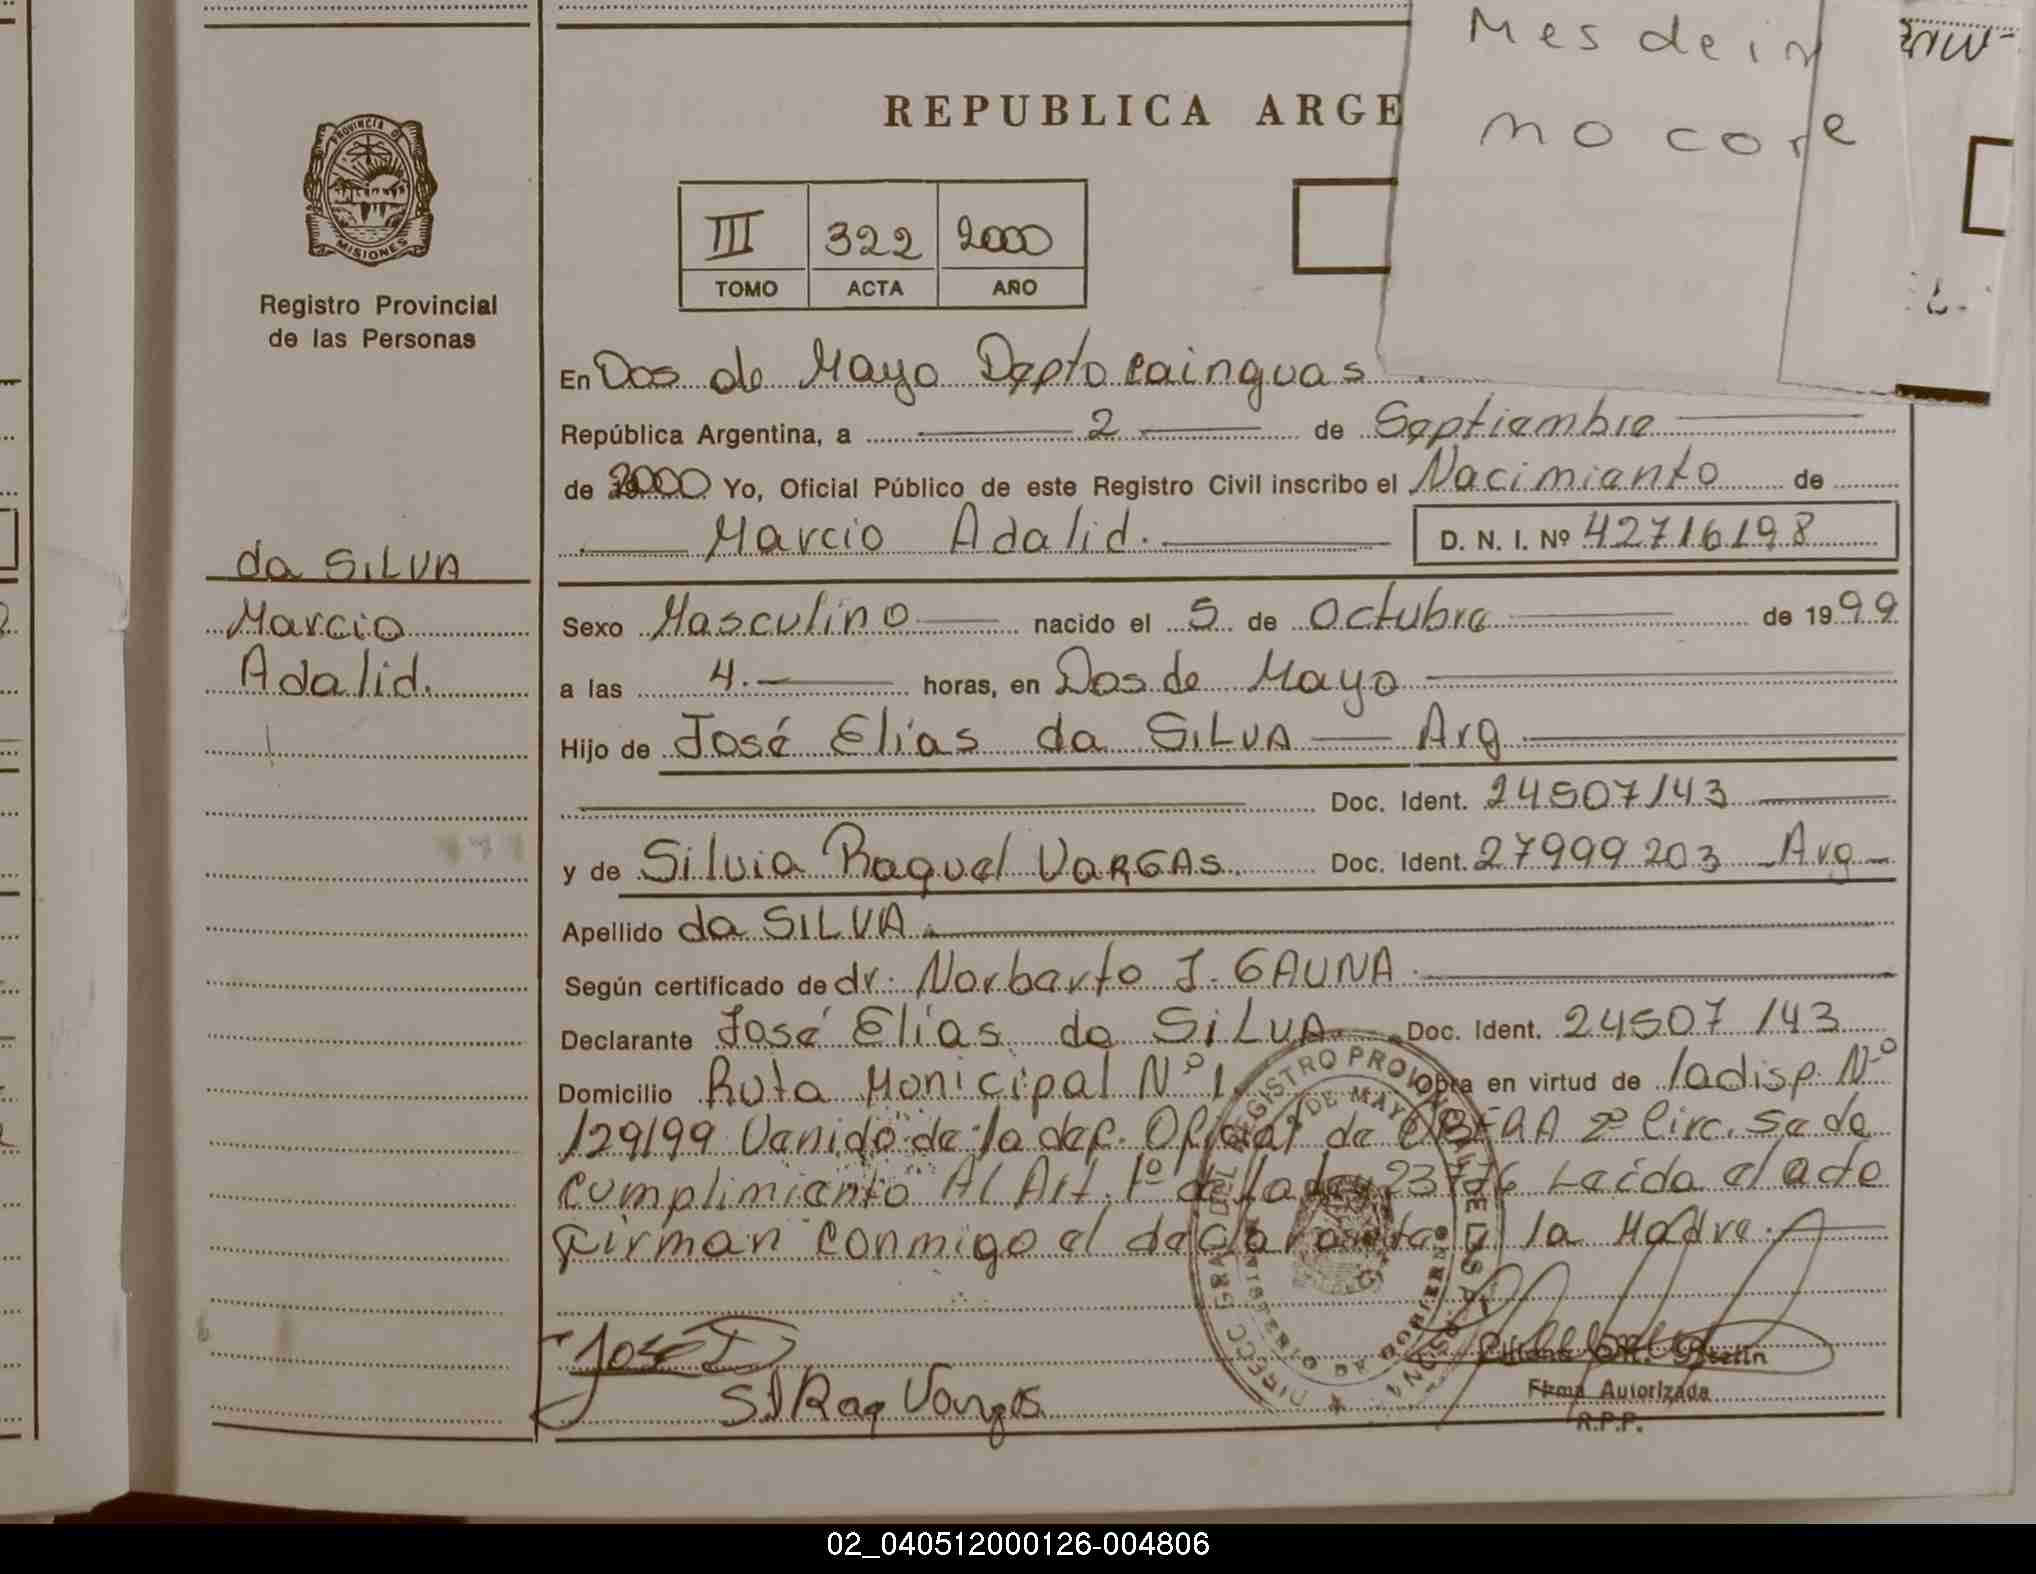 Mes de in
no corre
REPUBLICA ARGE
PROVINCIA DE
MISIONES
Registro Provincial
de las Personas
III 322 2000
TOMO ACTA AÑO
En Dos de Mayo Depto Cainguas
República Argentina, a 2 de Septiembre
de 2000 Yo, Oficial Público de este Registro Civil inscribo el Nacimiento de
Marcio Adalid. D. N. I. Nº 42716198
da SILVA
Marcio
Adalid.
Sexo Masculino nacido el 5 de Octubre de 1999
a las 4.- horas, en Dos de Mayo
Hijo de José Elías da SILVA Arg
Doc. Ident. 24507143
y de Silvia Raquel VARGAS Doc. Ident. 27999203 Arg
Apellido da SILVA
Según certificado de dr. Norberto J. GAUNA
Declarante José Elías da SILVA Doc. Ident. 24507143
Domicilio Ruta Municipal Nº 1. Obra en virtud de la disp. Nº
129/99 Venido de la def. Oficial de OBERA 2º Circ. Se da
cumplimiento Al Art. 1º de la ley 23776 Leída el acta
Firman conmigo el declarante y la Madre.
José D
Sil Raq Vargas
Firma Autorizada
R.P.P.
02_040512000126-004806